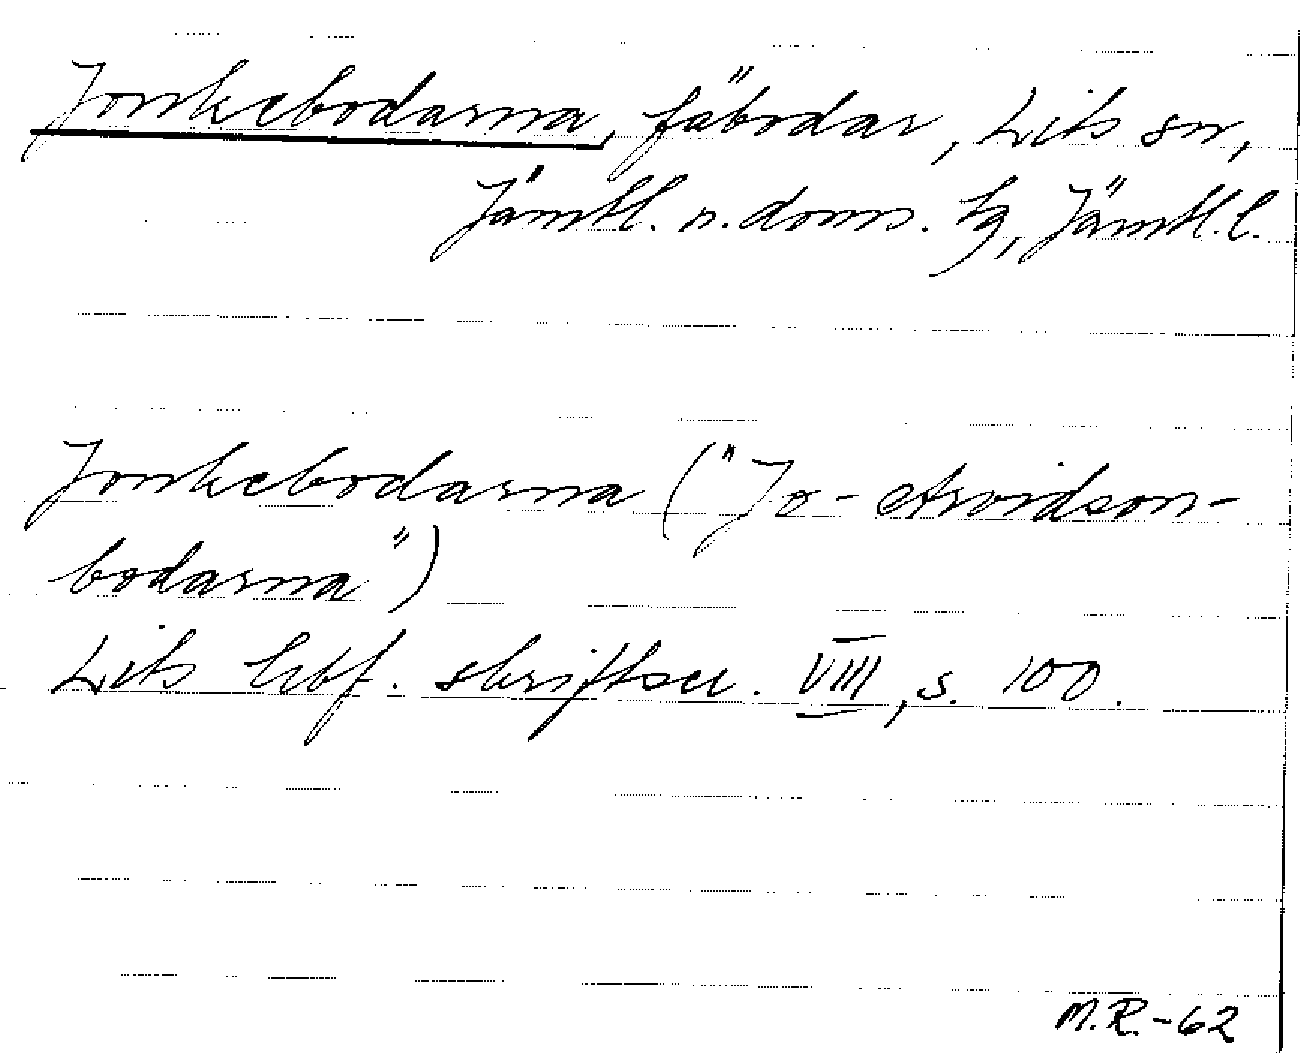 Jonkebodarna, fäbodar, Lits sn,
Jämtl. n. doms. tg, Jämtl. l.
Jonkebodarna ("Jo-Arvidson-
bodarna")
Lits hbf. skriftser. VIII, s. 100.
M.R.-62